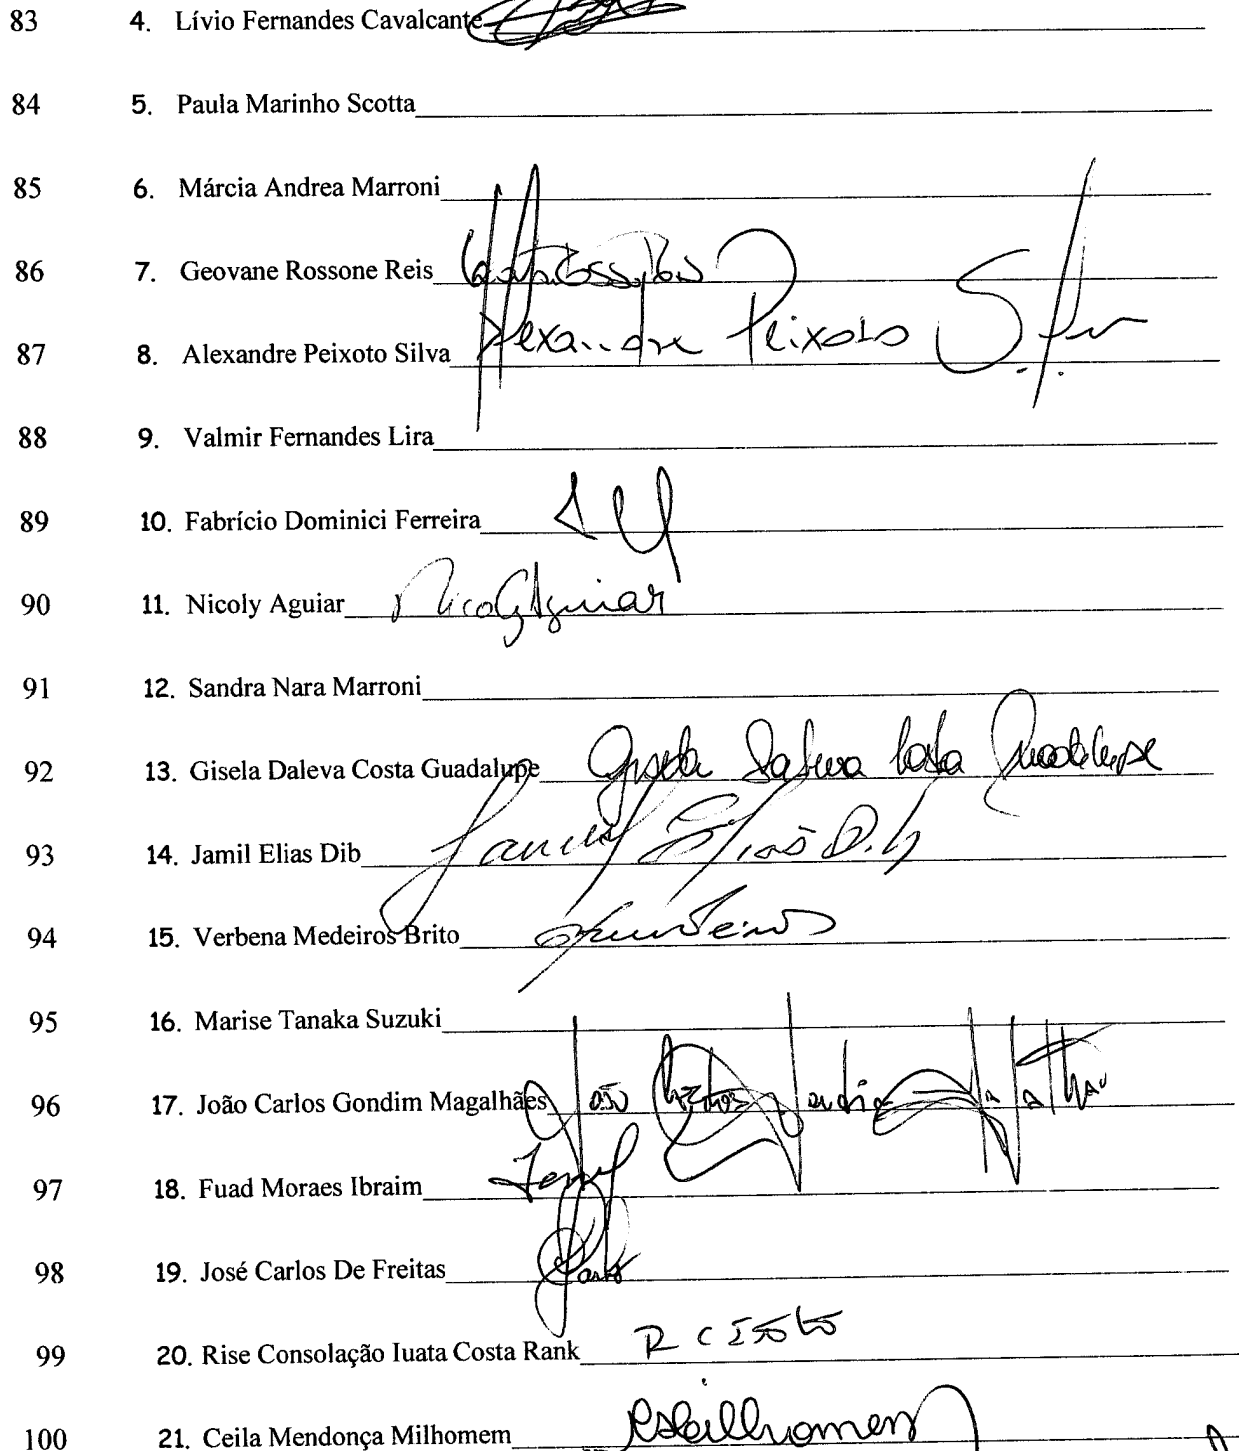 83 4. Lívio Fernandes Cavalcante
84 5. Paula Marinho Scotta
85 6. Márcia Andrea Marroni
86 7. Geovane Rossone Reis
87 8. Alexandre Peixoto Silva Alexandre Peixoto Silva
88 9. Valmir Fernandes Lira
89 10. Fabrício Dominici Ferreira
90 11. Nicoly Aguiar Nicoly Aguiar
91 12. Sandra Nara Marroni
92 13. Gisela Daleva Costa Guadalupe Gisela Daleva Costa Guadalupe
93 14. Jamil Elias Dib Jamil Elias Dib
94 15. Verbena Medeiros Brito
95 16. Marise Tanaka Suzuki
96 17. João Carlos Gondim Magalhães
97 18. Fuad Moraes Ibraim
98 19. José Carlos De Freitas
99 20. Rise Consolação Iuata Costa Rank
100 21. Ceila Mendonça Milhomem